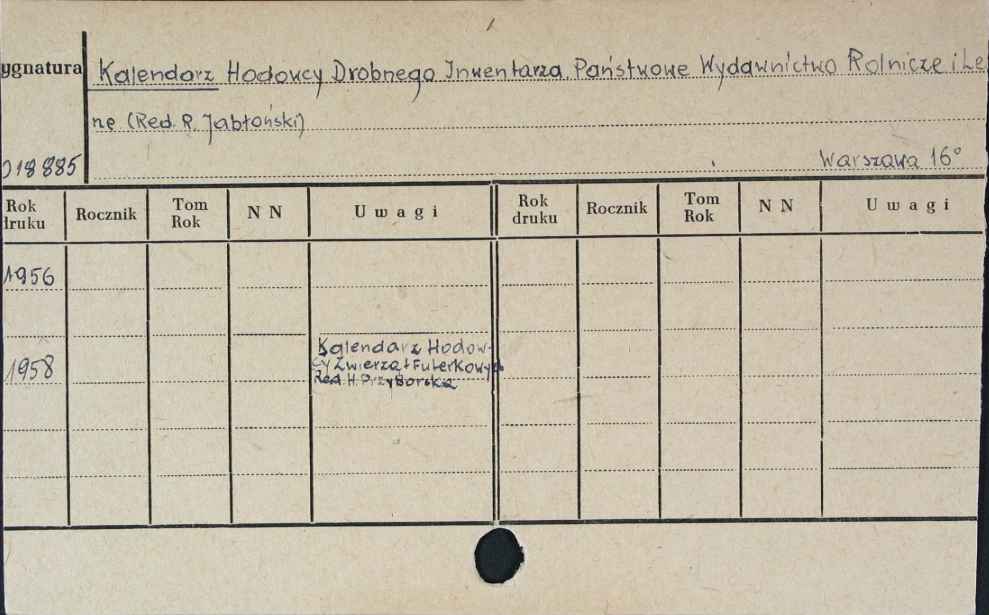 ygnatura Kalendarz Hodowcy Drobnego Inwentarza. Państwowe Wydawnictwo Rolnicze i Le
ne (Red. R. Jabłoński)
018885 Warszawa 16°
Rok druku Rocznik Tom Rok N N Uwagi Rok druku Rocznik Tom Rok N N Uwagi
1956
1958 Kalendarz Hodow-
cy Zwierząt Futerkowych
Red. H. Przyborska